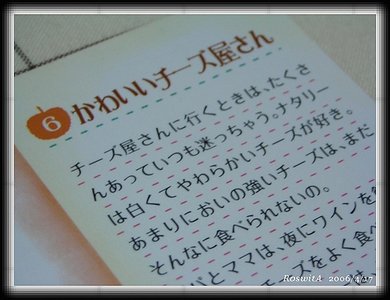 6 かわいいチーズ屋さん
チーズ屋さんに行くときは、たくさ
んあっていつも迷っちゃう。ナタリー
は白くてやわらかいチーズが好き。
あまりにおいの強いチーズは、まだ
そんなに食べられないの。
パとママは、夜にワインを
チーズをよく食べ
RoswitA 2006/4/27